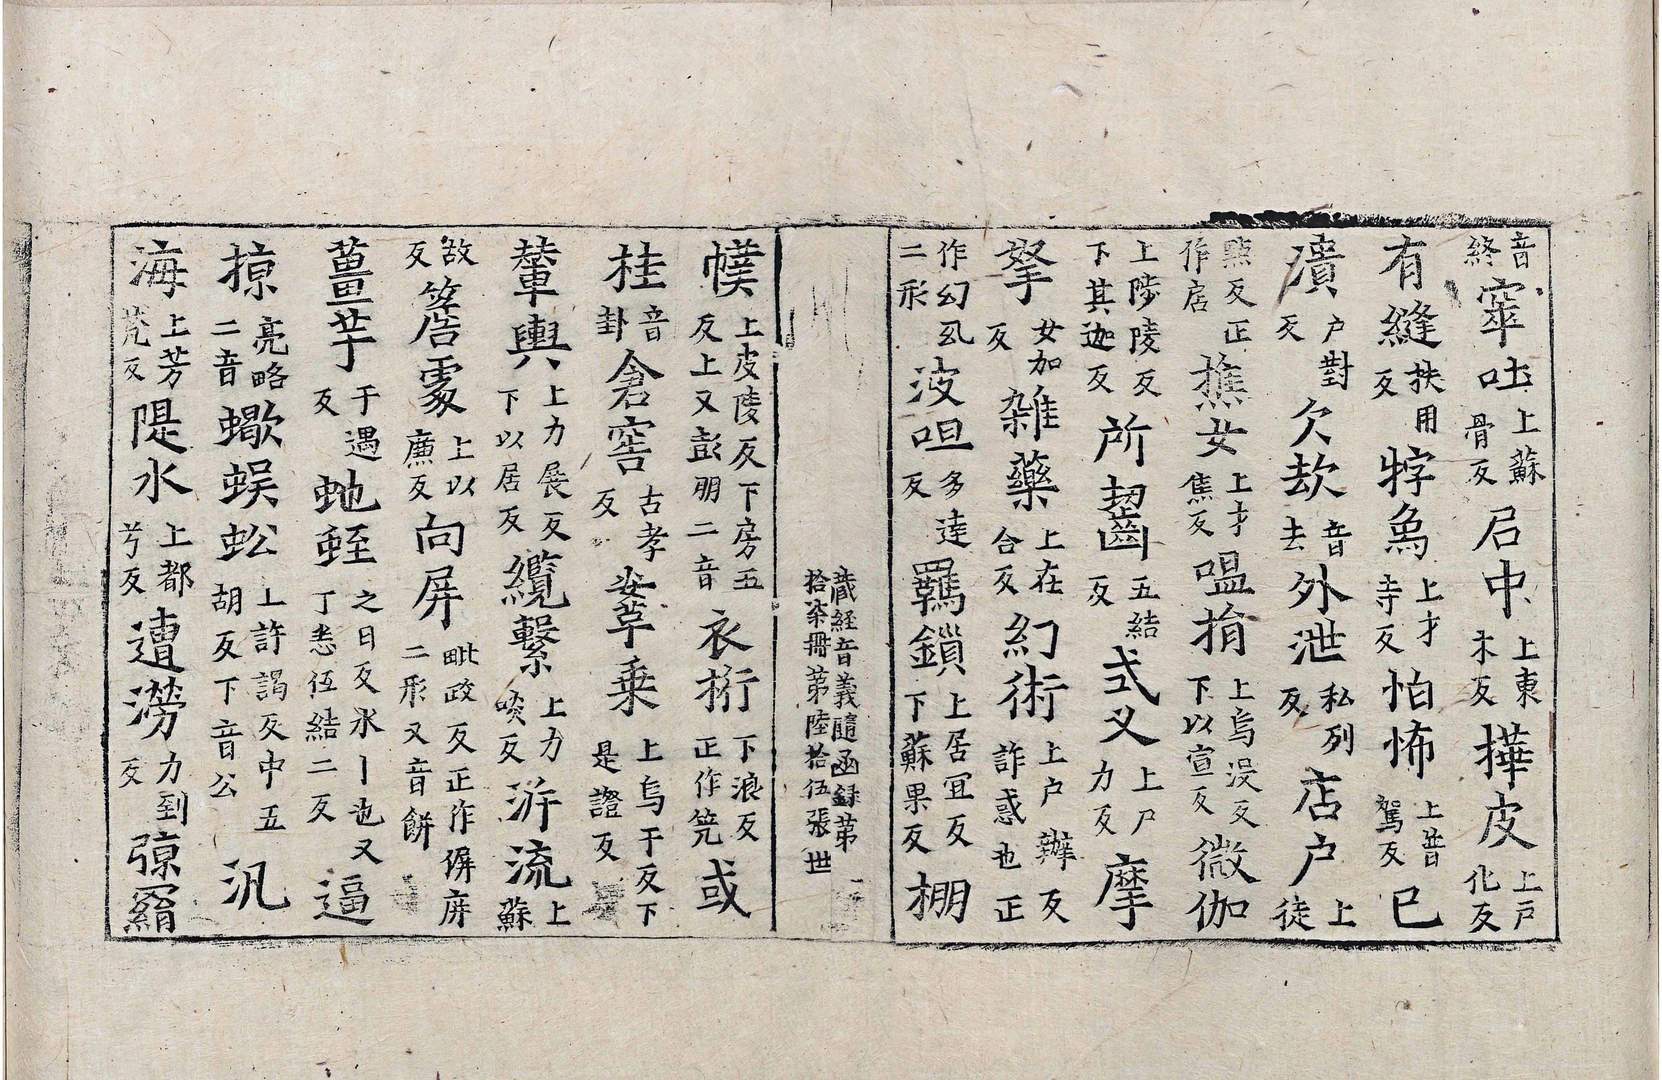 音終窣吐上蘇骨反启中上東木反撶皮上戸化反
有縫扶用反牸為上才寺反怕怖上普駕反已
潰戸對反欠㰦音去外泄私列反店户上徒
點反正作居撨女上才焦反嗢揃上烏没反下以宣反微伽
上陟陵反下其迦反所齧五結反弍叉上尸力反摩
拏女加反雑藥上在合反幻術上户辦反詐惑也正
作幻二形波呾多達反羈鎖上居宜反下蘇果反棚
蔵経音義隨函録苐拾柒冊苐陸拾伍張世
幞上皮陵反下房五反上又彭朋二音衣桁下浪反正作笐或
桂音卦倉窖古孝反荌草乗上烏干反下是證反
輦輿上力展反下以居反纜繫上力啖反泝流上蘇
故反簷霤上以廉反向屏毗政反正作偋庰二形又音餅
薑芋于遇反虵蛭之日反水丨也又丁悉伍結二反逼
掠亮略二音蠍蜈蚣上許謁反中五胡反下音公汎
海上芳梵反隄水上都兮反遭澇力到反弶罥